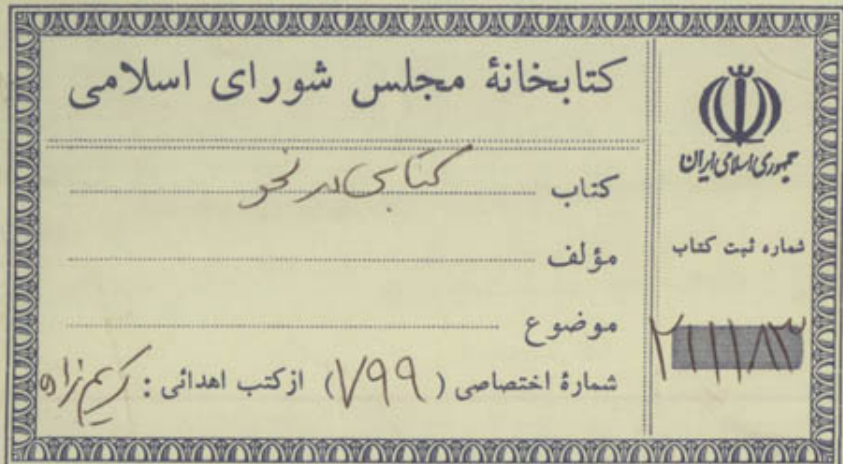 کتابخانهٔ مجلس شورای اسلامی
کتاب کتابی در نحو
مؤلف
موضوع
شمارهٔ اختصاصی (۷۹۹) از کتب اهدائی : کریم‌زاده
جمهوری اسلامی ایران
شماره ثبت کتاب
۲۱۱۱۸۳